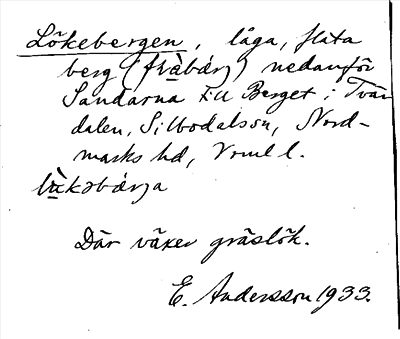 Lökebergen, låga, flata
berg (fräbärj) nedanför
Sandarna till Berget i Tvär
dalen, Silbodalssn, Nord-
marks hd, Vrml l.
läkəbärja
Där växer gräslök.
E. Andersson 1933.